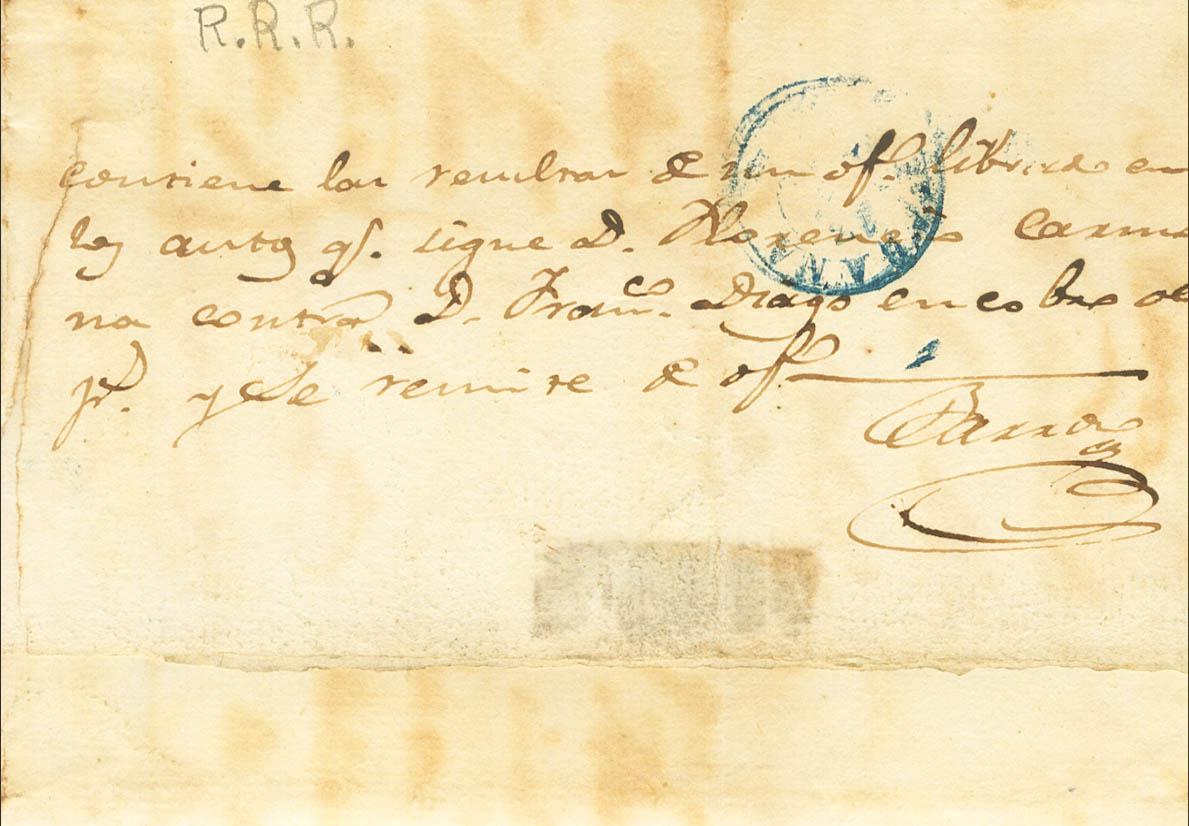 R.R.R.
contiene las resultas de un of.º librado en
los autos q.e sigue D. Florencio Carmo
na contra D. Fran.co Drago en cobro de
p.s y se remite de of.º
Parra
HABANA